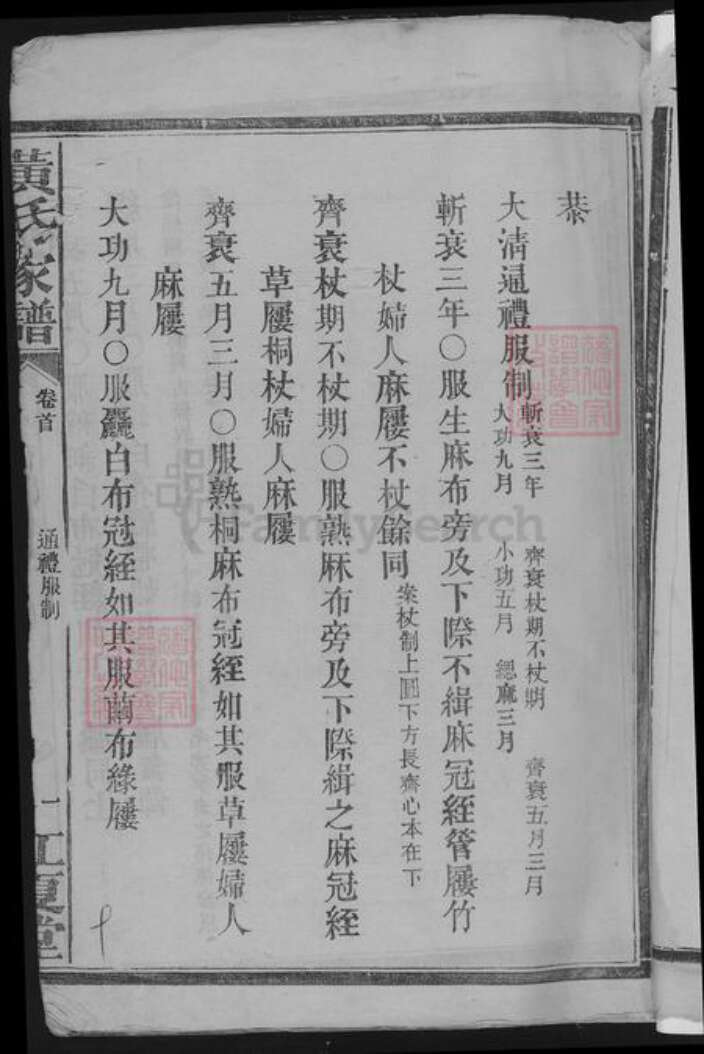 恭
大清通禮服制 斬衰三年 齊衰杖期不杖期 齊衰五月三月
大功九月 小功五月 緦麻三月
斬衰三年○服生麻布旁及下際不緝麻冠絰菅屨竹
杖婦人麻屨不杖餘同 案杖制上圓下方長齊心本在下
齊衰杖期不杖期○服熟麻布旁及下際緝之麻冠絰
草屨桐杖婦人麻屨
齊衰五月三月○服熟桐麻布冠絰如其服草屨婦人
麻屨
大功九月○服麤白布冠絰如其服繭布緣屨
黃氏家譜
卷首
通禮服制
一
江夏堂
FamilySearch